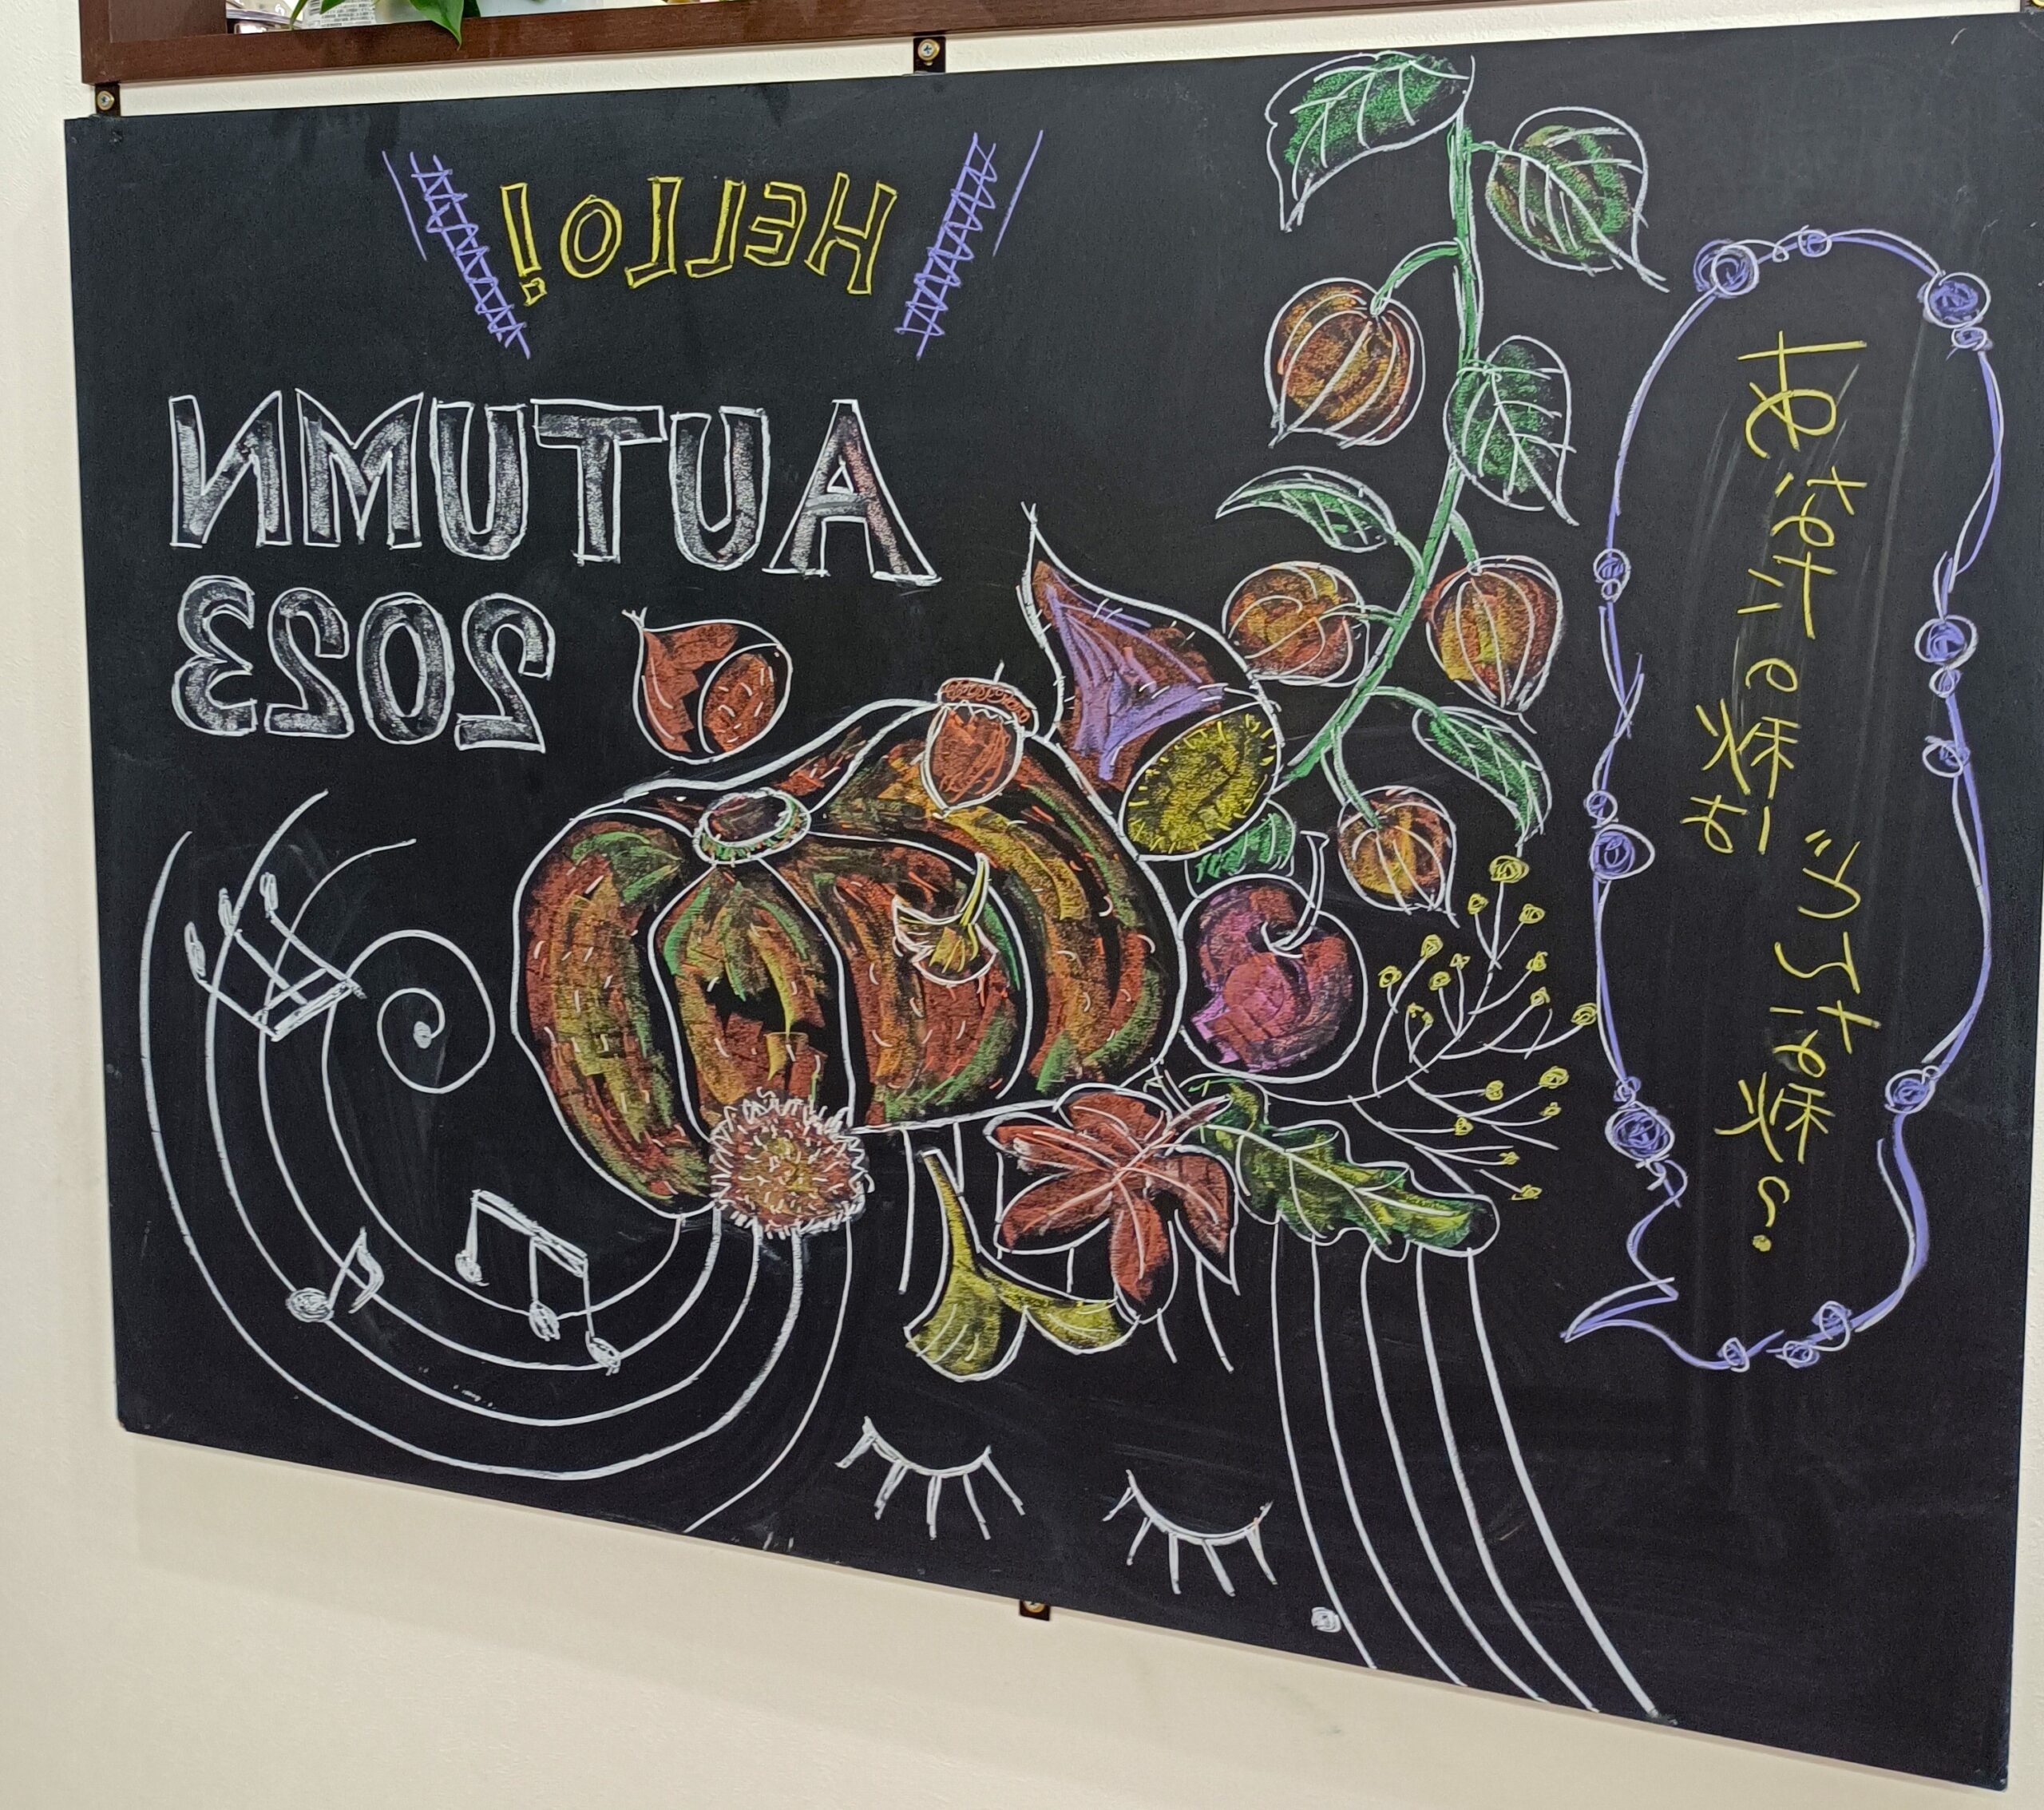 HELLO!
AUTUMN
2023
あなたの秋は
どんな秋?